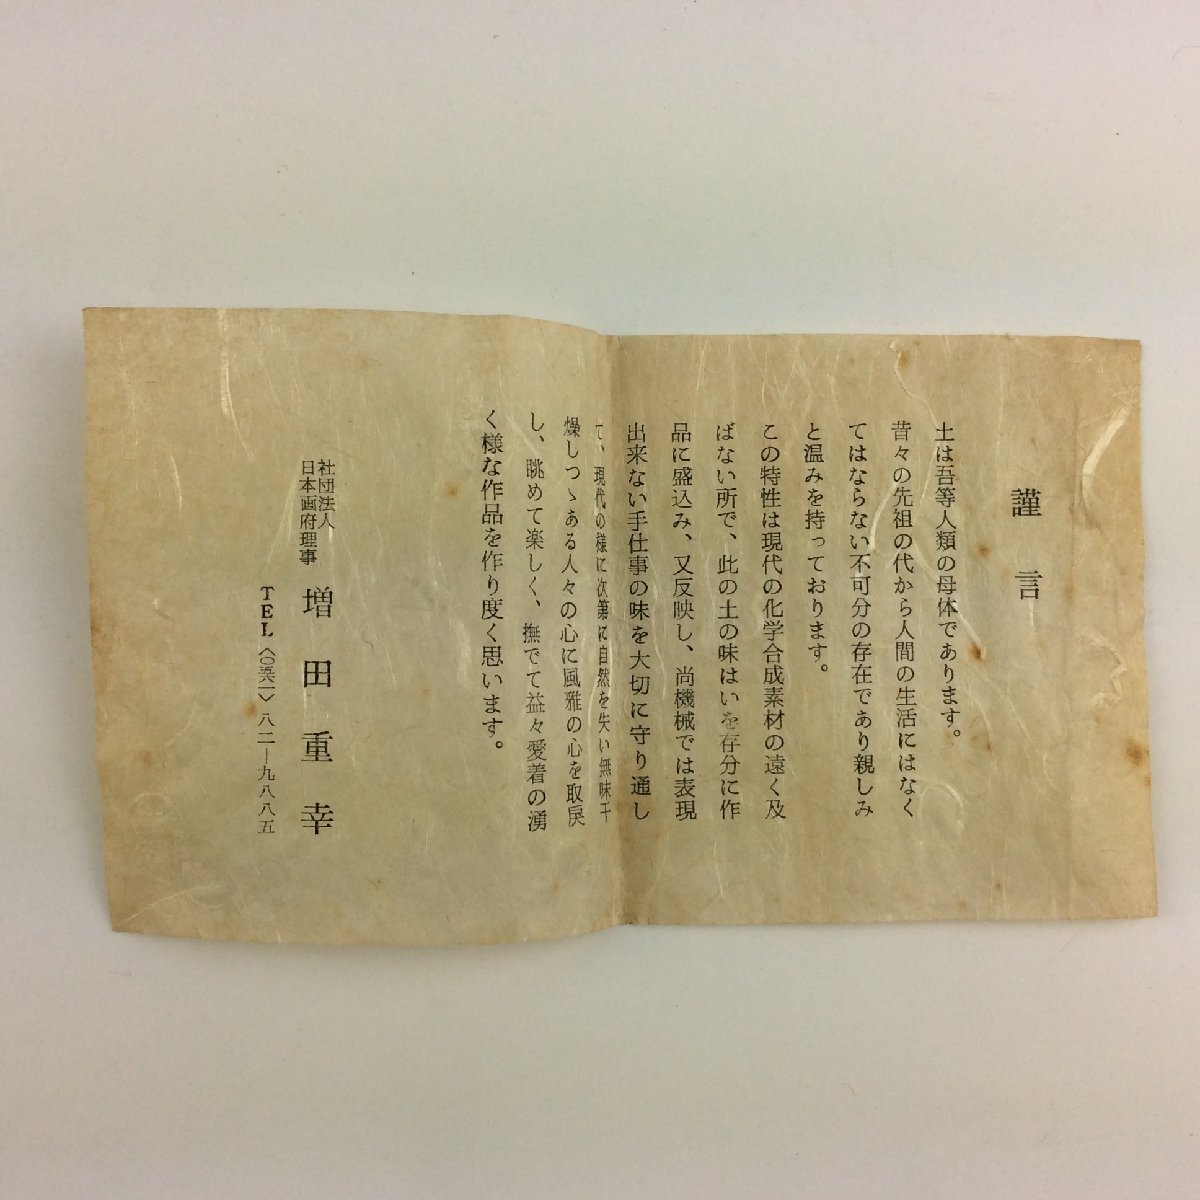 謹言
土は吾等人類の母体であります。
昔々の先祖の代から人間の生活にはなく
てはならない不可分の存在であり親しみ
と温みを持っております。
この特性は現代の化学合成素材の遠く及
ばない所で、此の土の味はいを存分に作
品に盛込み、又反映し、尚機械では表現
出来ない手仕事の味を大切に守り通し
て、現代の様に次第に自然を失い無味干
燥しつゝある人々の心に風雅の心を取戻
し、眺めて楽しく、撫でて益々愛着の湧
く様な作品を作り度く思います。
社団法人
日本画府理事
増田重幸
TEL〈〇五六一〉八二—九八八五